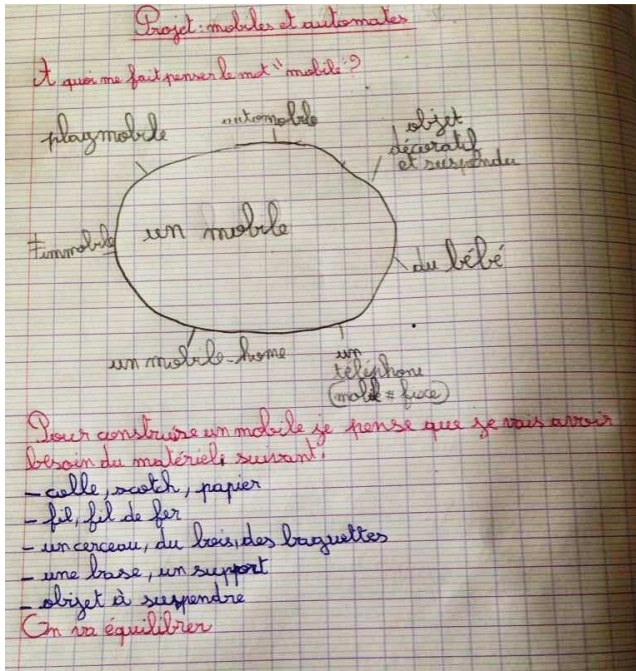 Projet : mobiles et automates
A quoi me fait penser le mot "mobile"?
playmobile
automobile
objet
décoratif
et suspendu
≠immobile
un mobile
du bébé
un mobile-home
un
téléphone
(mobile ≠ fixe)
Pour construire un mobile je pense que je vais avoir
besoin du matériel suivant:
- colle, scotch, papier
- fil, fil de fer
- un cerceau, du bois, des baguettes
- une base, un support
- objet à suspendre
On va équilibrer